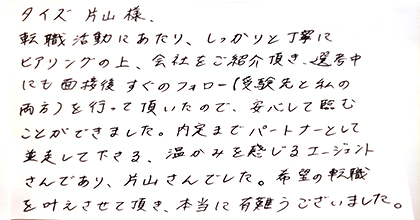 タイズ 片山様、
転職活動にあたり、しっかりと丁寧に
ヒアリングの上、会社をご紹介頂き、選考中
にも面接後すぐのフォロー(受験先と私の
両方)を行って頂いたので、安心して臨む
ことができました。内定までパートナーとして
並走して下さる、温かみを感じるエージェント
さんであり、片山さんでした。希望の転職
を叶えさせて頂き、本当に有難うございました。